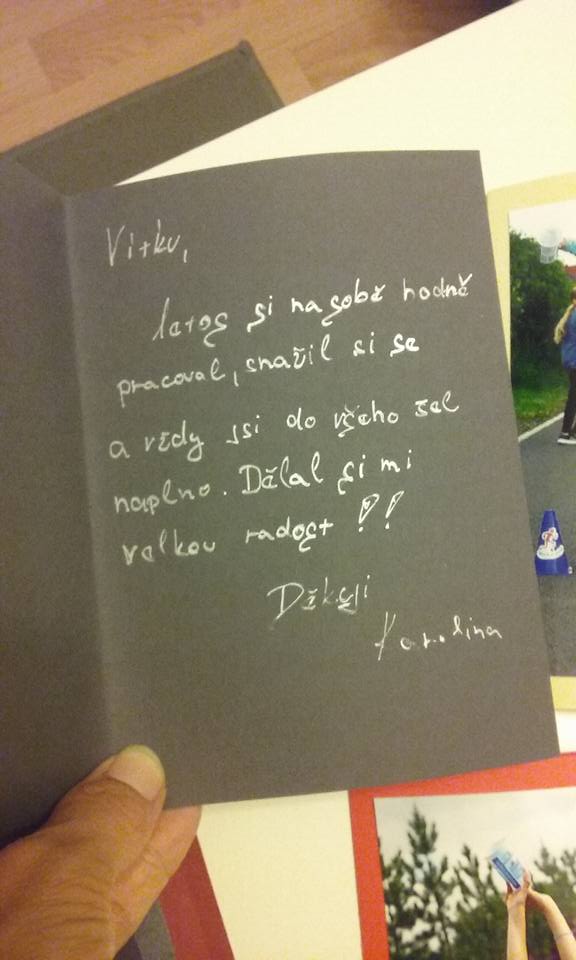 Vitku,
letos si na sobě hodně
pracoval, snažil si se
a vždy jsi do všeho šel
naplno. Dělal si mi
velkou radost !!
Děkuji
Karolina